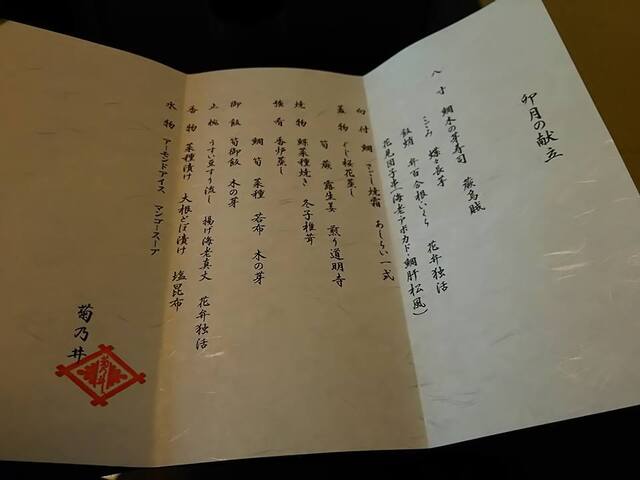 卯月の献立
八寸 鯛木の芽寿司 厳烏賊
こごみ 蝶々長芋 花弁独活
飯蛸 弁百合根いくら
花見団子串(海老アボカド・鯛肝松風)
向付 鯛 こごし焼霜 あしらい一式
蓋物 ぐじ桜花蒸し
筍 蕨 露生姜 煎り道明寺
焼物 鱒菜種焼き 冬子椎茸
強肴 香炉蒸し
鯛 筍 菜種 若布 木の芽
御飯 筍御飯 木の芽
止椀 うすい豆すり流し 揚げ海老真丈 花弁独活
香物 菜種漬け 大根どぼ漬け 塩昆布
水物 アーモンドアイス マンゴースープ
菊乃井
菊乃井